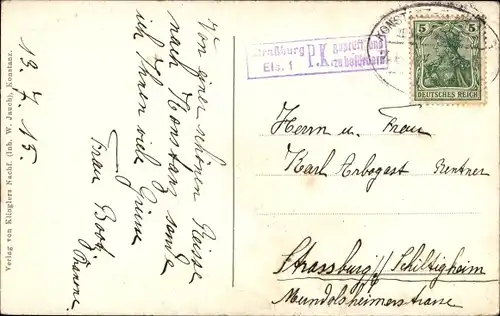 13. 7. 15.
Von einer schönen Reise
nach Konstanz sende
ich Ihnen viele Grüsse
Frau Bootz
Verlag von Klinglers Nachf. (Inh. W. Jauch), Konstanz.
Straßburg
Els. 1
P.K.
Geprüft und
zu befördern
KONSTANZ
5 5
DEUTSCHES REICH
Herrn u. Frau
Karl Arbogast Rentner
Strassburg // Schiltigheim
Mundolsheimerstrasse